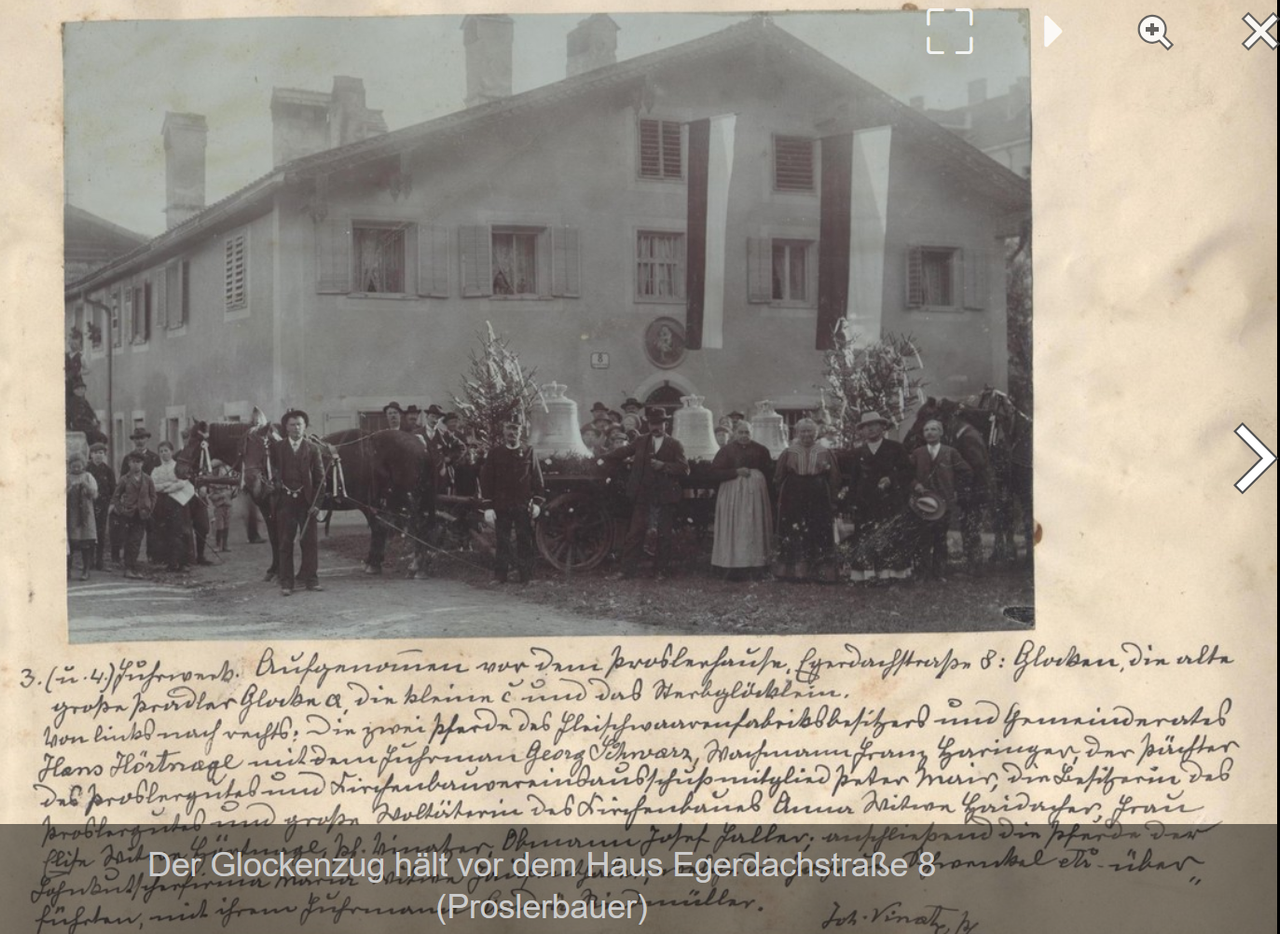 8
3. (u. 4.) Fuhrwerk. Aufgenommen vor dem Proslerhause, Egerdachstraße 8: Glocken, die alte
große Pradler Glocke a, die kleine c und das Sterbglöcklein.
Von links nach rechts: Die zwei Pferde des Fleischwaarenfabriksbesitzers und Gemeinderates
Hans Hörtnagl mit dem Fuhrman Georg Schwarz, Wachmann Franz Haringer, der Pächter
des Proslergutes und Kirchenbauvereinsausschußmitglied Peter Mair, die Besitzerin des
Proslergutes und große Woltäterin des Kirchenbaues Anna Witwe Haidacher, Frau
Elise Witwe Hörtnagl, Pf. Vinatzer, Obmann Josef Haller, anschließend die Pferde der
Lohnkutscherfirma Maria Witwe über„
führten, mit ihrem Fuhrmann
Joh. Vinatz
Der Glockenzug hält vor dem Haus Egerdachstraße 8
(Proslerbauer)